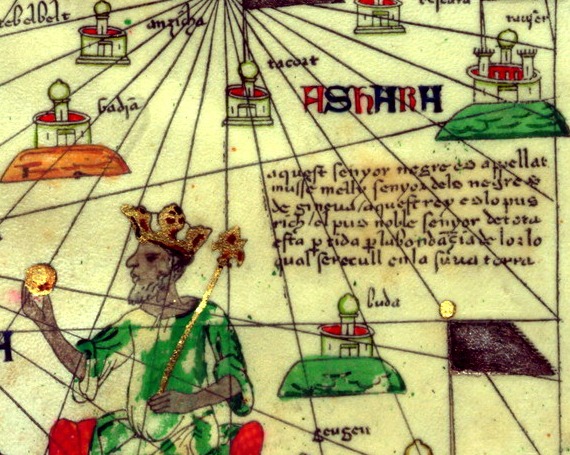 tebelbelt
anzicha
tacort
ASHARA
aquest senyor negre es appellat
musse melly senyor dels negres
de gineua / aquest rey es lo pus
rich / el pus noble senyor de tota
esta ptida p labondaçia de lor lo
qual se recull en la suua terra
buda
geugeu